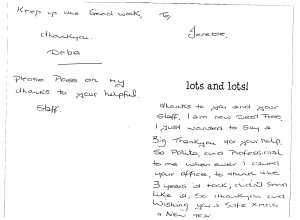 Keep up the Good work,
Thankyou.
Debo
Please Pass on my
thanks to your helpful
Staff.
To,
Janette,
lots and lots!
thanks to you and your
Staff, I am now Debt Free,
I just wanted to Say a
Big Thankyou for your help.
So Polite, and Professional
to me when ever I called
your office, to think the
3 years it took, didn't seem
like it, So thankyou and
Wishing you a Safe Xmas
+ New Year